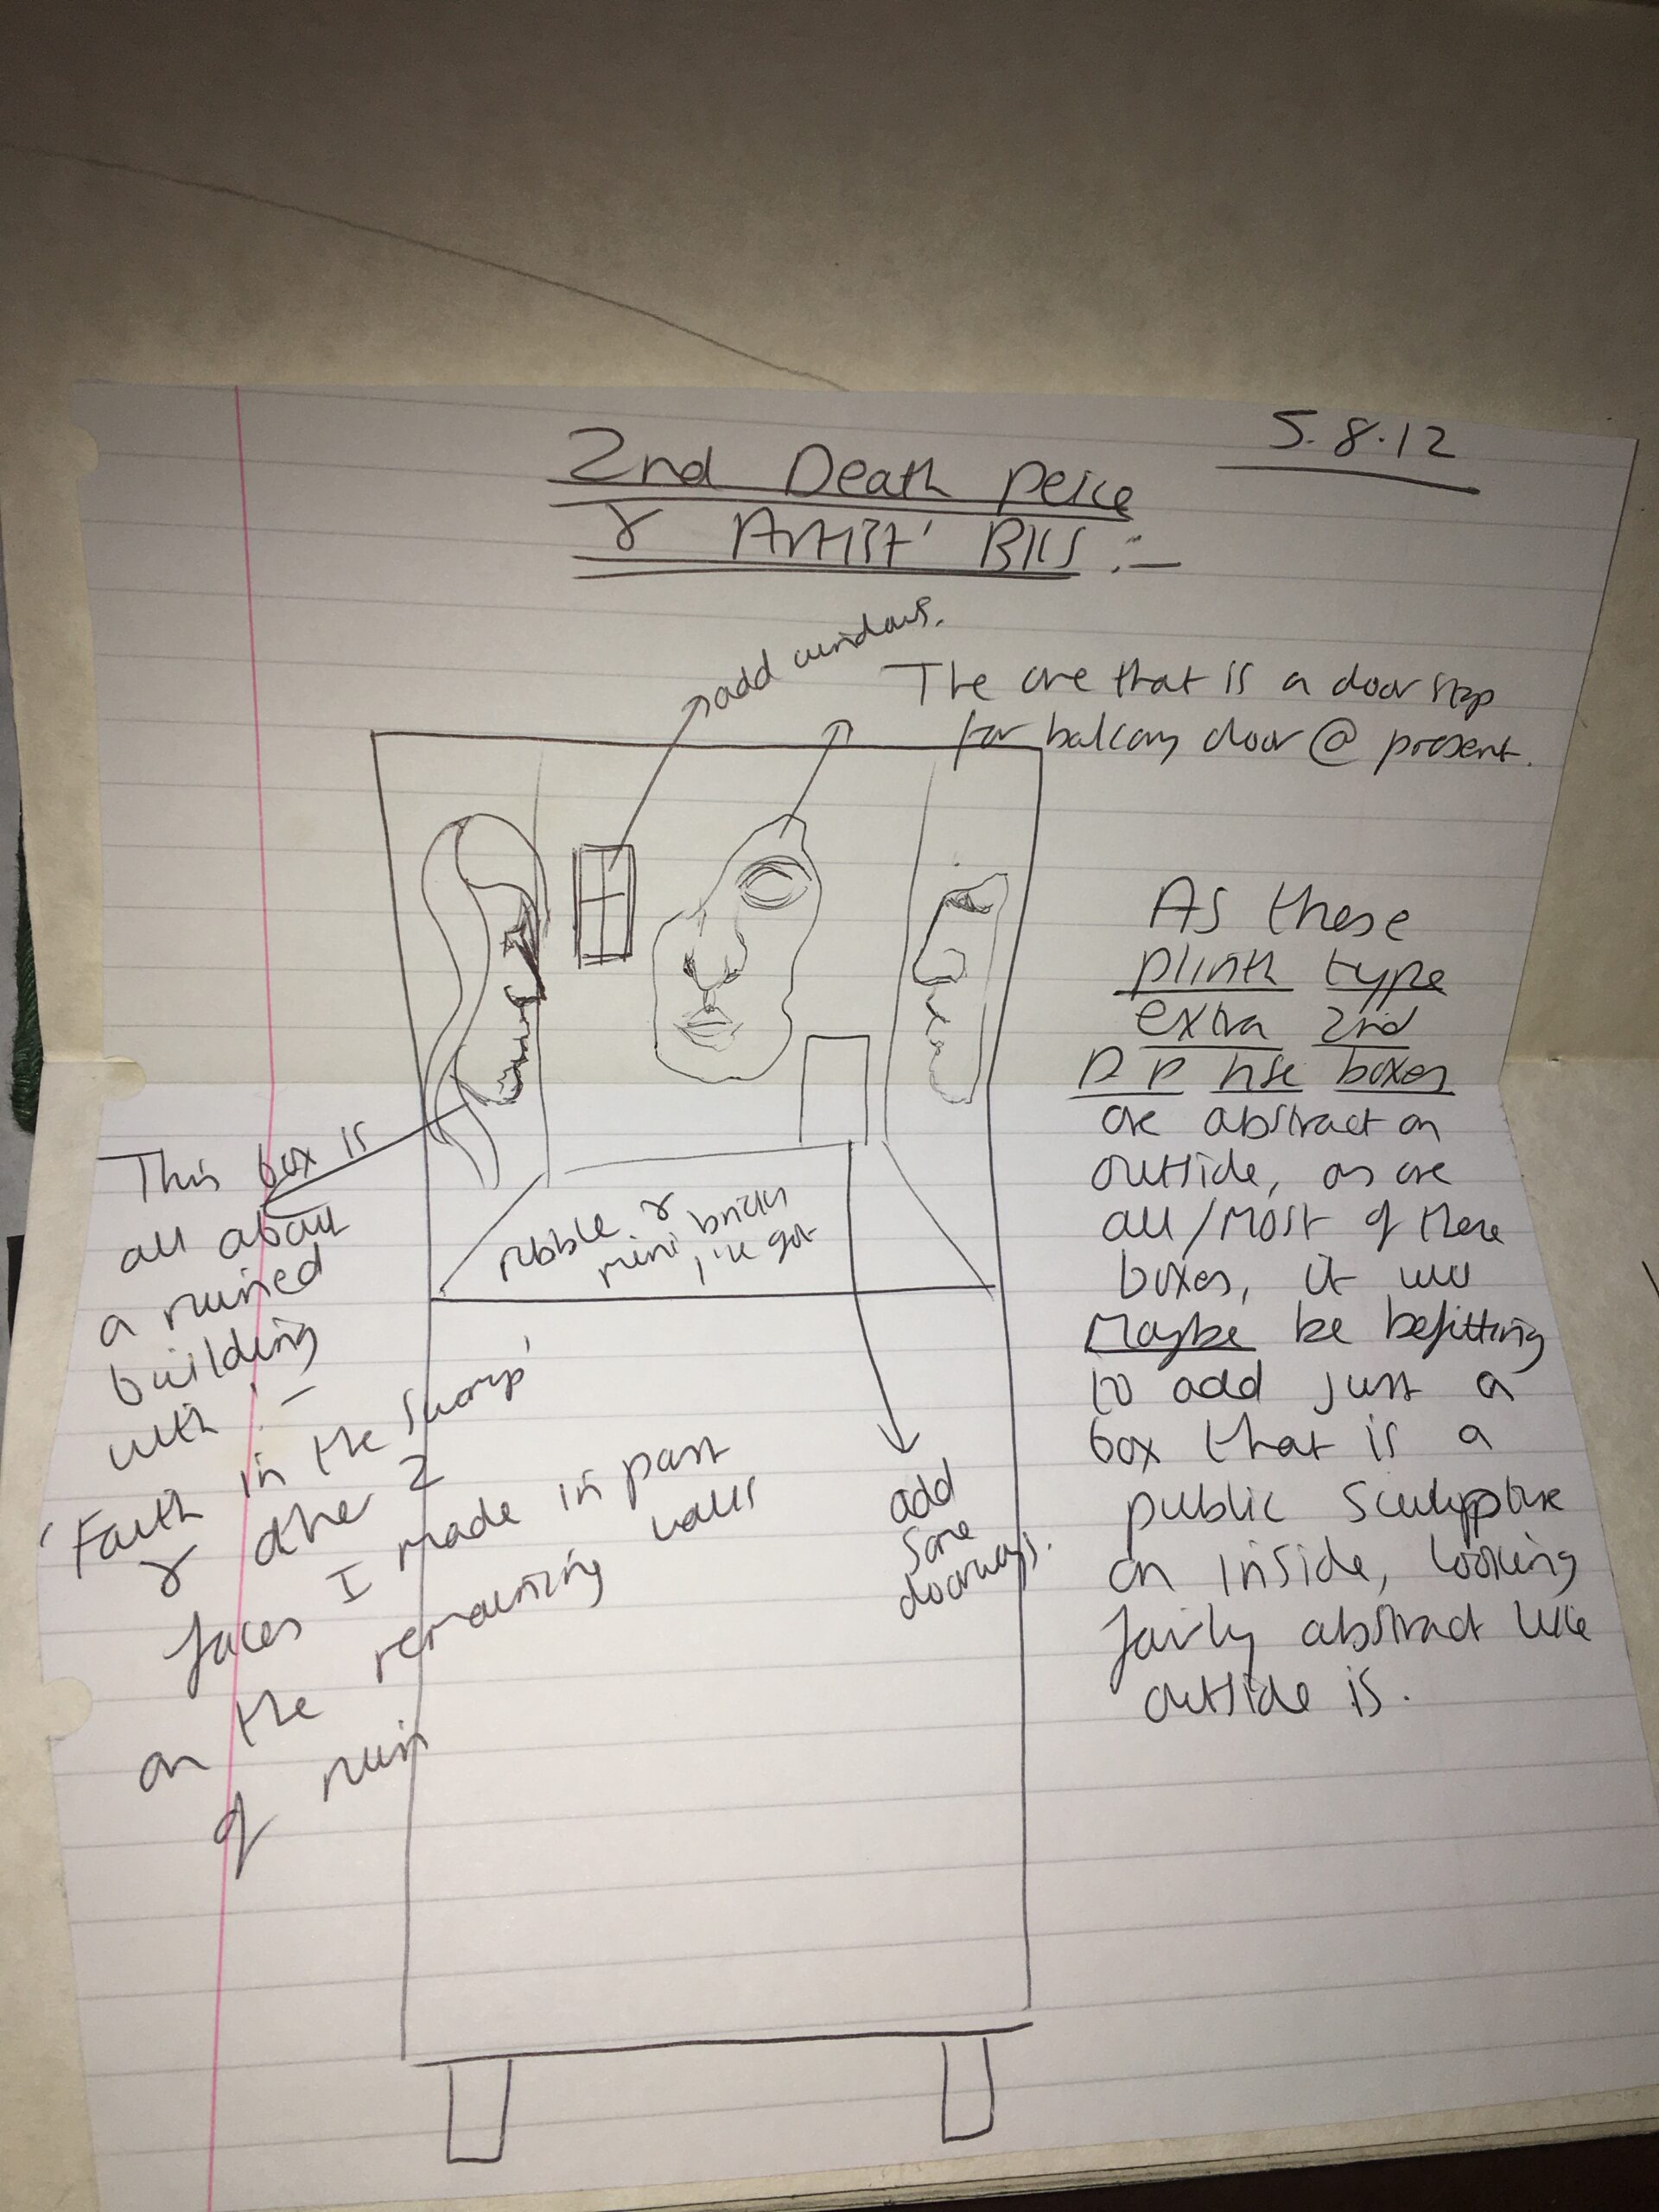 5.8.12
2nd Death Peice
& Artist' BKS :-
add windows.
The one that is a door stop
for balcony door @ present.
rubble &
mini bricks
I've got
This box is
all about
a ruined
building
with :-
'Faith in the Swamp'
& other 2
faces I made in past
on the remaining walls
of ruin
add
some
doorways.
As these
plinth type
extra 2nd
D P hse boxes
are abstract on
outside, as are
all/most of these
boxes, it will
Maybe be befitting
to add just a
box that is a
public sculpture
on inside, looking
fairly abstract like
outside is.